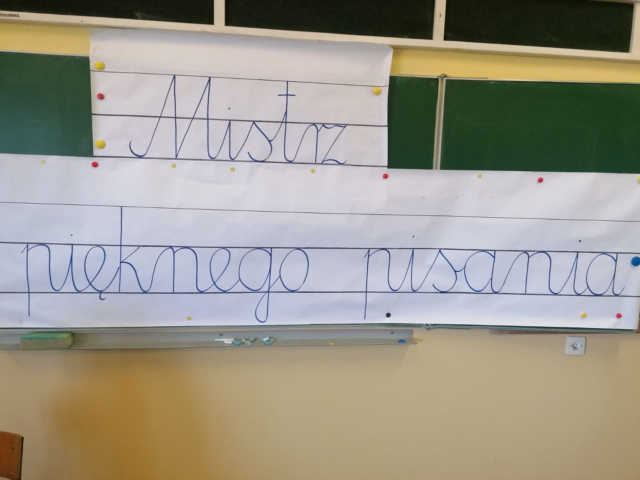 Mistrz
pięknego pisania